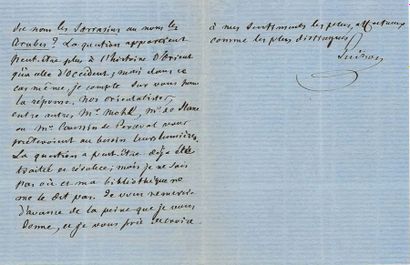 dre nom les Sarrasins au nom les
Arabes ? La question appartient
peut-être plus à l'histoire d'Orient
qu'à celle d'Occident ; mais dans ce
cas même, je compte sur vous pour
la réponse. Nos orientalistes,
entre autres Mr. Mohl, Mr. de Slane
ou Mr. Caussin de Perceval vous
prêteroient au besoin leurs lumières.
La question a peut-être déjà été
traitée et résolue ; mais je ne sais
pas où et ma bibliothèque ne
me le dit pas. Je vous remercie
d'avance de la peine que je vous
donne, et je vous prie de croire
à mes sentiments les plus affectueux
comme les plus distingués.
Guizot